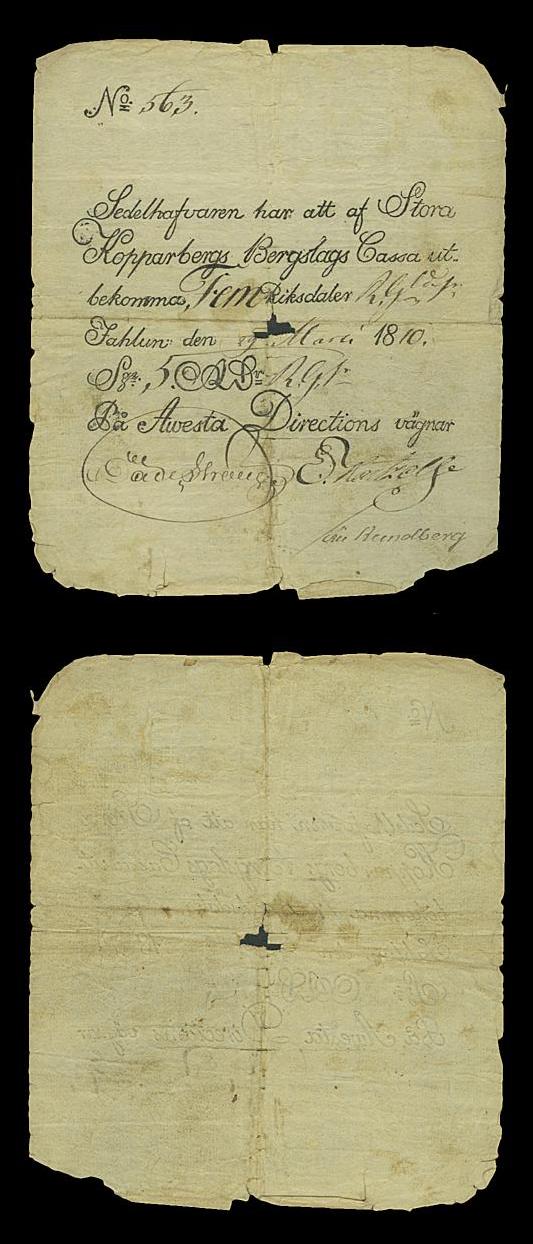 No. 563.
Sedelhafvaren har att af Stora
Kopparbergs Bergslags Cassa ut-
bekomma, Fem Riksdaler
Fahlun: den 29 Martii 1810.
5.
På Awesta Directions vägnar
Rundberg